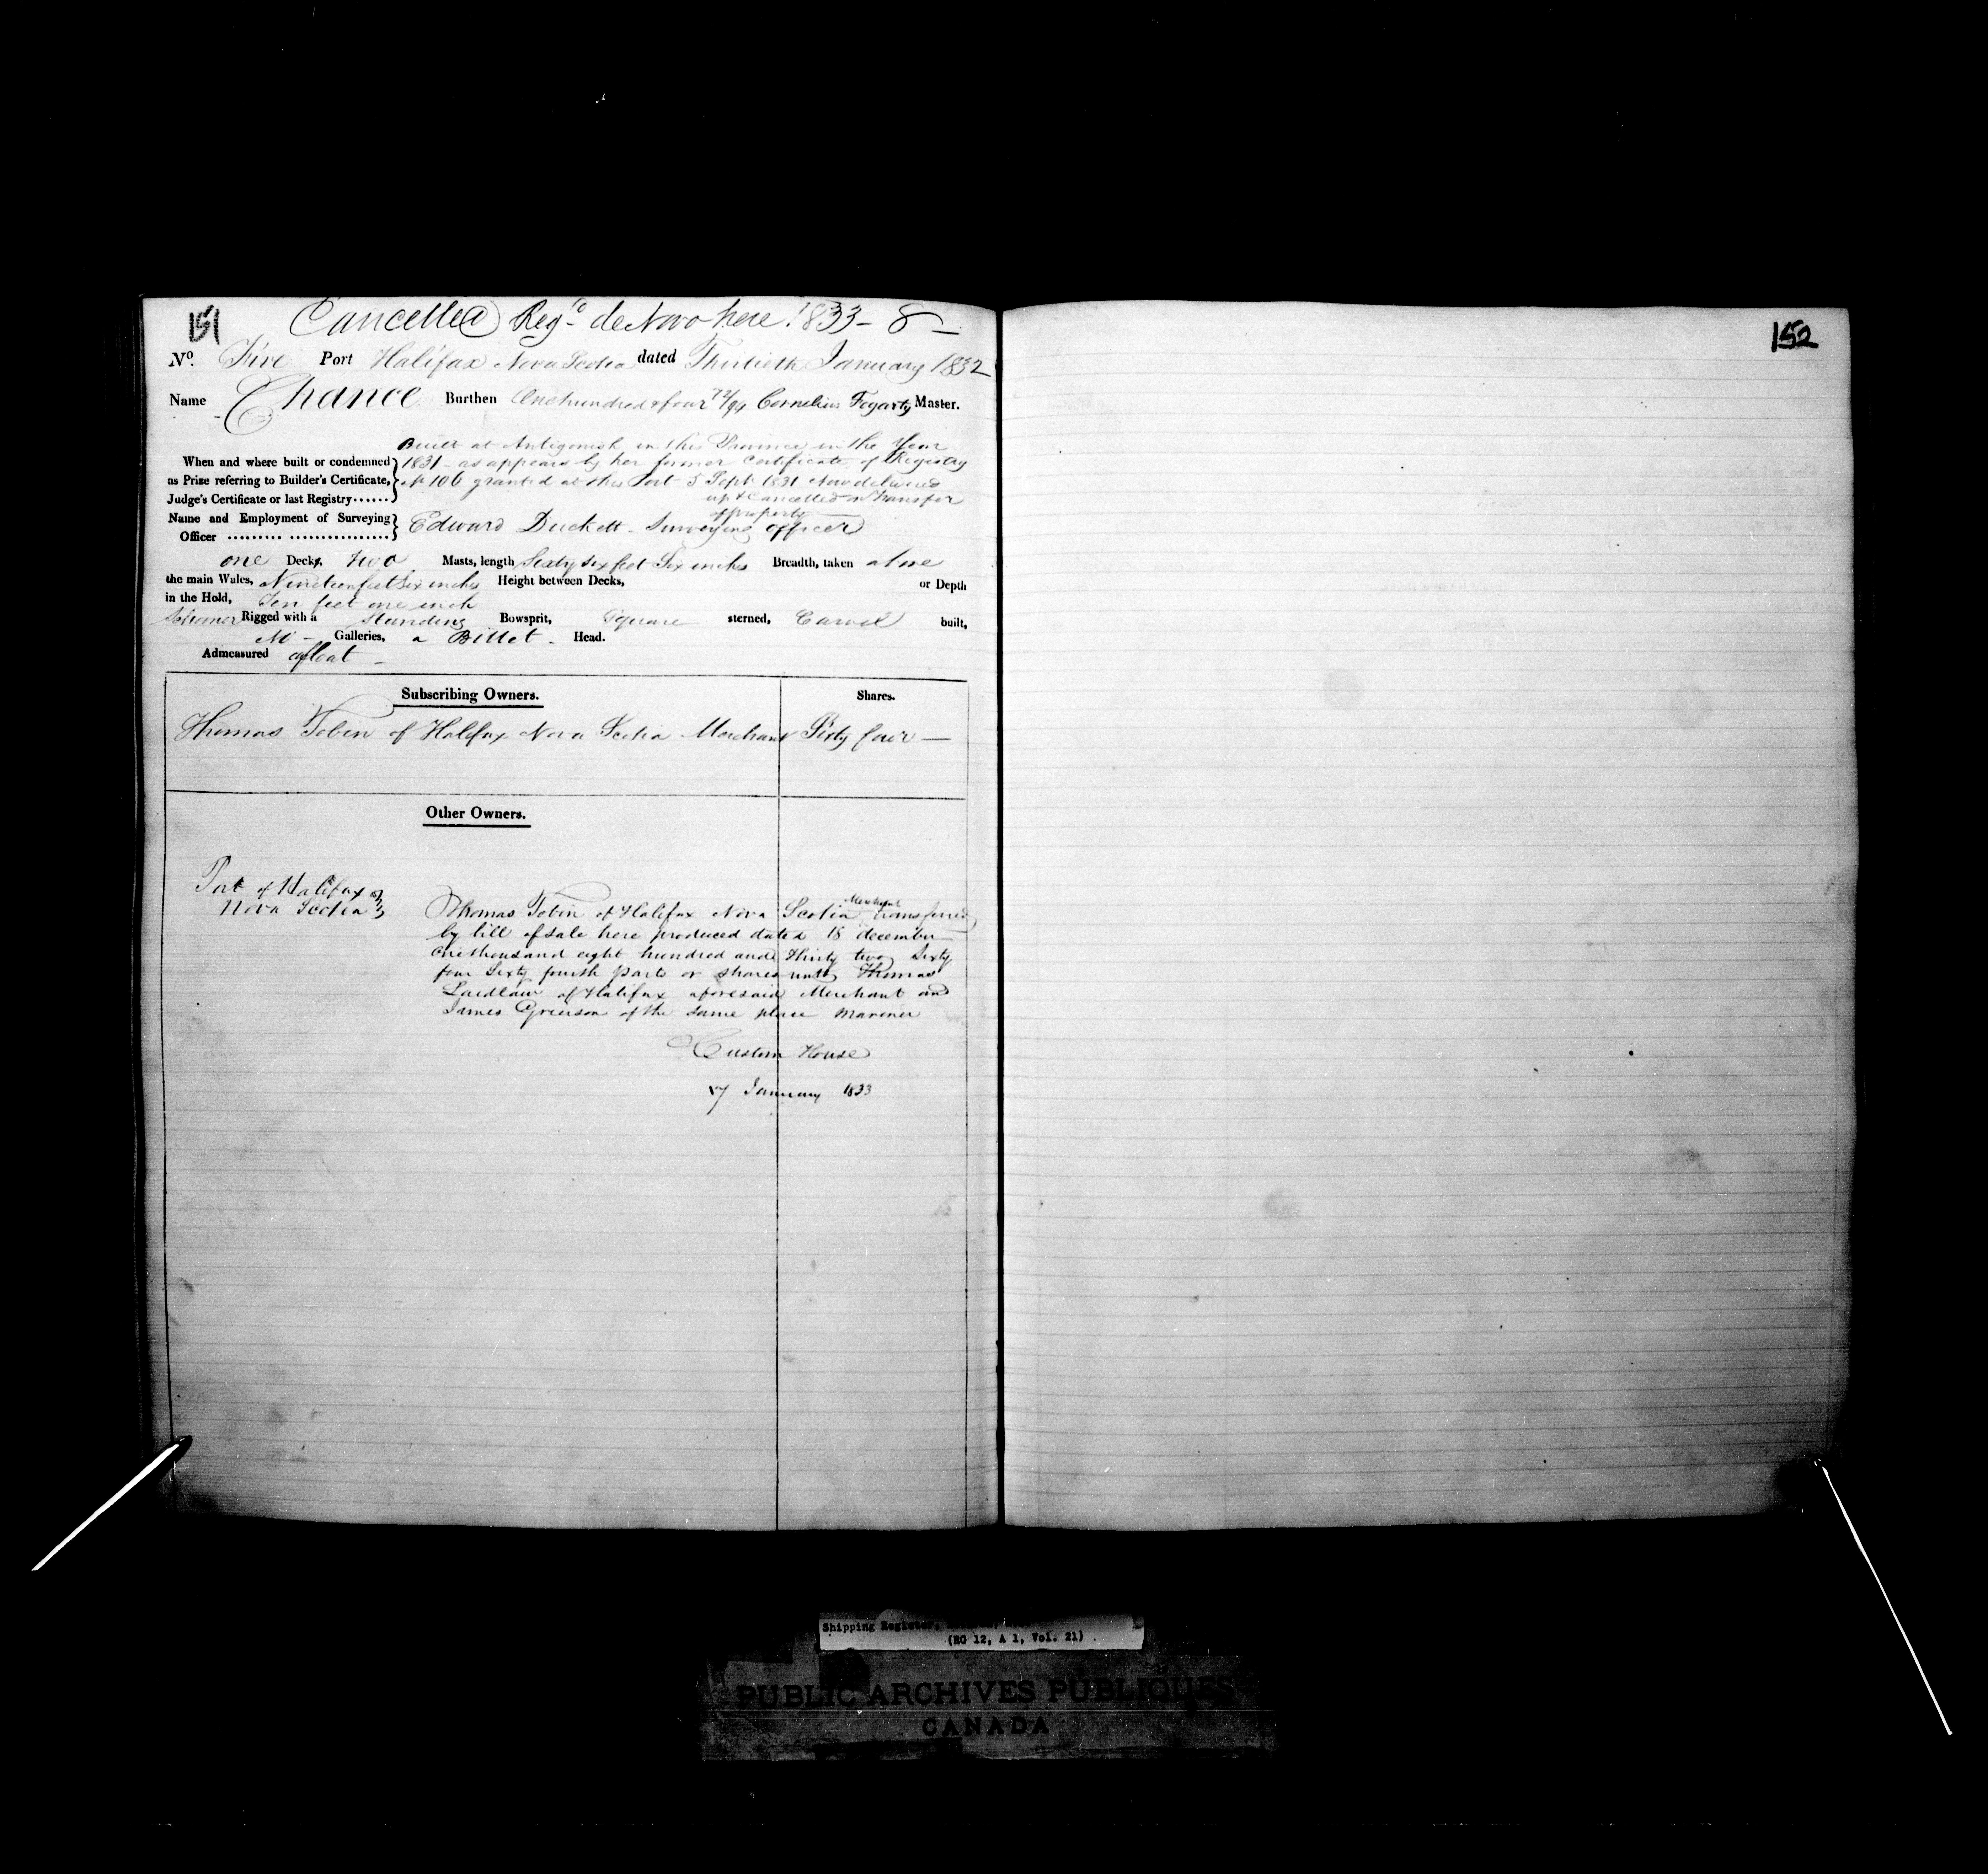 151
Cancelled Reg.d de Novo here 1833 - 8 -
No. Five Port Halifax Nova Scotia dated Thirtieth January 1832
Name Chance Burthen One hundred & four 72/94 Cornelius Fogarty Master.
Built at Antigonish in this Province in the Year
When and where built or condemned 1831 - as appears by her former Certificate of Registry
as Prize referring to Builder's Certificate, No 106 granted at this Port 5 Sept 1831 Now delivered
Judge's Certificate or last Registry...... up & Cancelled on transfer
of property
Name and Employment of Surveying Edward Duckett - Surveying officer
Officer
one Decks, two Masts, length Sixty six feet Six inches Breadth, taken above
the main Wales, Nineteen feet six inches Height between Decks, or Depth
in the Hold, Ten feet one inch
Schooner Rigged with a Standing Bowsprit, Square sterned, Carvel built,
No - Galleries, a Billet - Head.
Admeasured afloat -
Subscribing Owners. Shares.
Thomas Tobin of Halifax Nova Scotia Merchant Sixty four -
Other Owners.
Port of Halifax
Nova Scotia
Merchant
Thomas Tobin of Halifax Nova Scotia transferred
by bill of sale here produced dated 18 december
one thousand eight hundred and Thirty two Sixty
four Sixty fourth parts or shares unto Thomas
Laidlaw of Halifax aforesaid Merchant and
James Grierson of the same place Mariner
Custom House
17 January 1833
152
Shipping Register,
(RG 12, A 1, Vol. 21)
PUBLIC ARCHIVES PUBLIQUES
CANADA